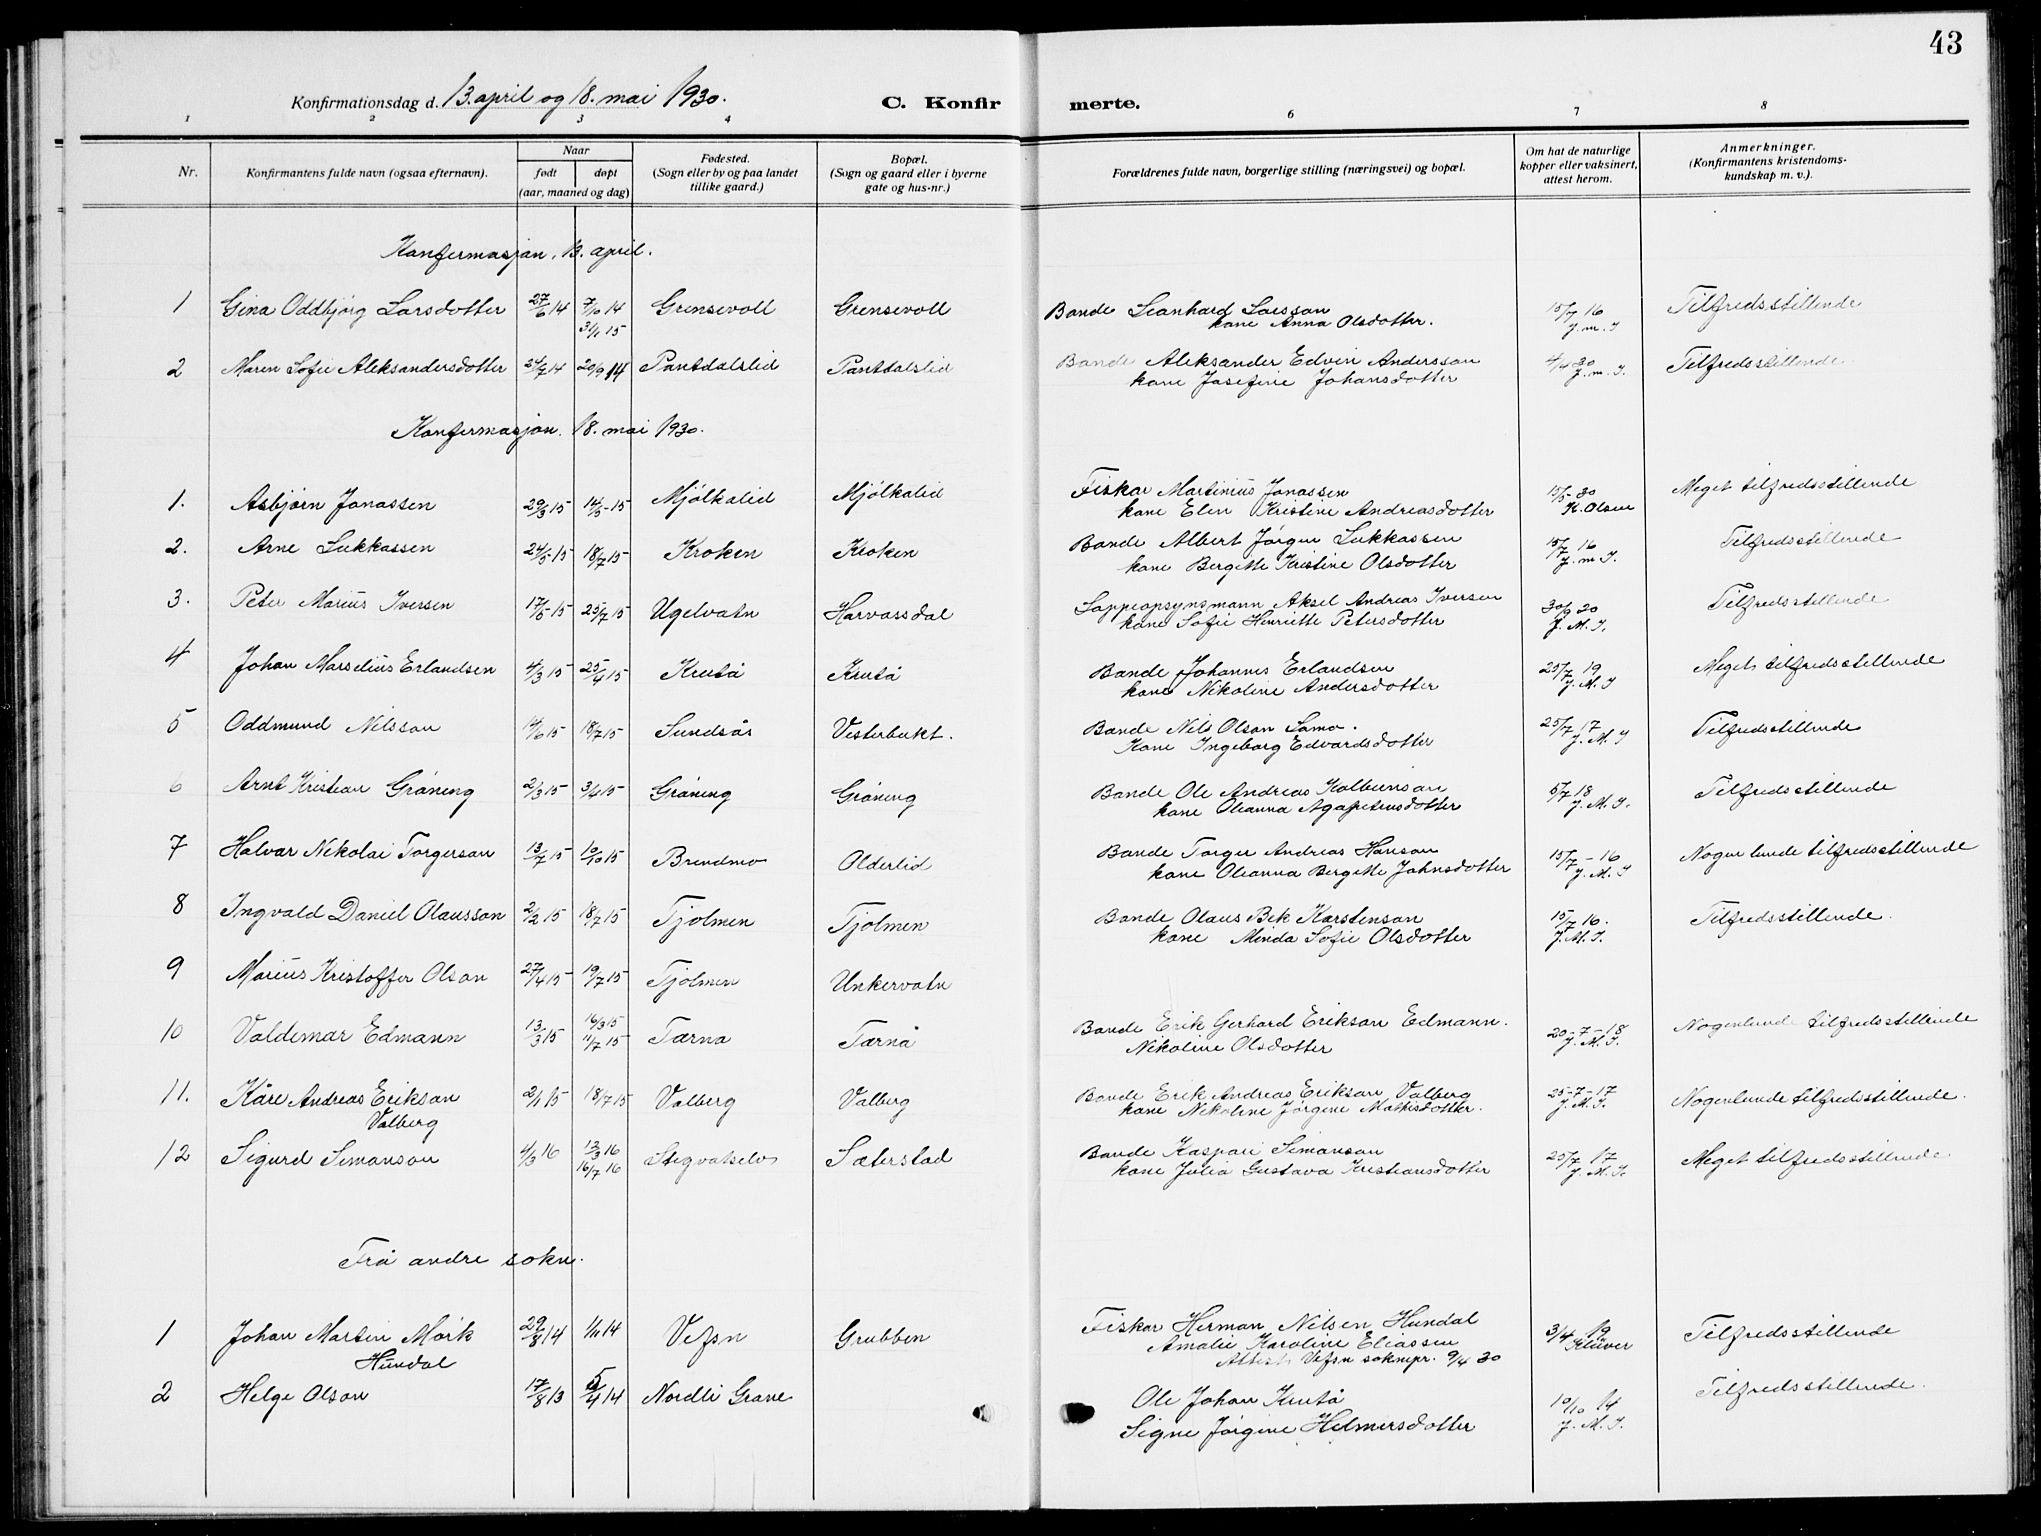 43
Konfirmationsdag d. 13. april og 18. mai 1930. C. Konfir merte.
1 2 3 4 6 7 8
Nr. Konfirmantens fulde navn (ogsaa efternavn). Naar født døpt (aar, maaned og dag) Fødested. (Sogn eller by og paa landet tillike gaard.) Bopæl. (Sogn og gaard eller i byerne gate og hus-nr.) Forældrenes fulde navn, borgerlige stilling (næringsvei) og bopæl. Om hat de naturlige kopper eller vaksinert, attest herom. Anmerkninger. (Konfirmantens kristendomskundskap m. v.).
Konfermasjon. 13. april.
1 Gina Oddbjørg Larsdotter 27/6 14 7/10 14 Grensevoll Grensevoll Bonde Leonhard Larsson 15/7 16 Tilfredsstillende
31/1 15 kone Anna Olsdotter. J. m. I
2 Maren Sofie Aleksandersdotter 24/7 14 20/9 14 Pantdalslid Pantdalslid Bonde Aleksander Edvin Andersson 4/4-30 Tilfredsstillende
kone Josefine Johansdotter J. m. I.
Konfermasjon. 18. mai 1930.
1. Asbjørn Jonassen 29/3 15 14/5-15 Mjólkalid Mjólkalid Fiskar Martinius Jonassen 15/5-30 Meget tilfredsstillende
kone Elen Kristine Andreasdotter K. Olsen
2. Arne Lukkassen 24/5 15 18/7 15 Kroken Kroken Bonde Albert Jørgen Lukkassen 15/7 16 Tilfredsstillende
kone Bergitte Kristine Olsdotter J. m I.
3. Peter Marius Iversen 17/5 15 25/7 15 Ugelvatn Harvassdal Lappeopsynsmann Aksel Andreas Iversen 30/9 20 Tilfredsstillende
kone Sofie Henriette Petersdotter J. M. I.
4 Johan Marselius Erlandsen 4/3 15 25/4 15 Krutå Krutå Bonde Johannes Erlandsen 20/7 19 Meget tilfredsstillende
kone Nikoline Andersdotter J. M. I
5 Oddmund Nilsson 14/6 15 18/7 15 Sundsås Vesterbukt. Bonde Nils Olson Samo. 25/7 17 Tilfredsstillende
Kone Ingeborg Edvardsdotter J. M. I
6 Arnt Kristian Gróning 2/3 15 3/4 15 Gróning Gróning Bonde Ole Andreas Kolbeinson 5/7 18 Tilfredsstillende
kone Oleanna Agapetusdotter J. M. I.
7 Halvar Nikolai Torgerson 13/7 15 10/10 15 Brendmo Olderlid Bonde Torger Andreas Hanson 15/7-16 Nogenlunde tilfredsstillende
kone Oleanna Bergitte Johnsdotter J. M. I
8 Ingvald Daniel Olausson 2/2 15 18/7 15 Tjolmen Tjolmen Bonde Olaus Bek Karstenson 15/7 16. Tilfredsstillende.
kone Minda Sofie Olsdotter J. M. I.
9 Marius Kristoffer Olson 27/4 15 19/7 15 Tjolmen Unkervatn
10 Valdemar Edmann 13/3 15 16/3 15 Tærna Tærnå Bonde Erik Gerhard Erikson Edmann. 20-7-18 Nogenlunde tilfredsstillende
11/7 15 Nikoline Olsdotter J. M. I.
11. Kåre Andreas Erikson 2/1 15 18/7 15 Valberg Valberg Bonde Erik Andreas Erikson Valberg 25-7-17 Nogenlunde tilfredsstillende.
Valberg kone Nikoline Jørgine Mathisdotter. J. M. I.
12 Sigurd Simonson 4/3 16 13/3 16 Stegvatselv Sæterstad Bonde Kaspari Simonson 20/7 17 Meget tilfredsstillende
16/7 16 kone Julia Gustava Kristiansdotter J. M. I.
Frå andre sokn.
1 Johan Martin Mörk 29/8 14 1/11 14 Vefsn Grubben Fiskar Herman Nilsen Hundal 3/4 19 Tilfredsstillende
Hundal Amalie Karoline Eliassen Klüver
Attest Vefsn soknepr. 9/4 30
2 Helge Olson 17/8 13 5/4 14 Nordli Grane Ole Johan Krutå 10/10 14 Tilfredsstillende.
Signe Jørgine Helmersdotter J. M. I.